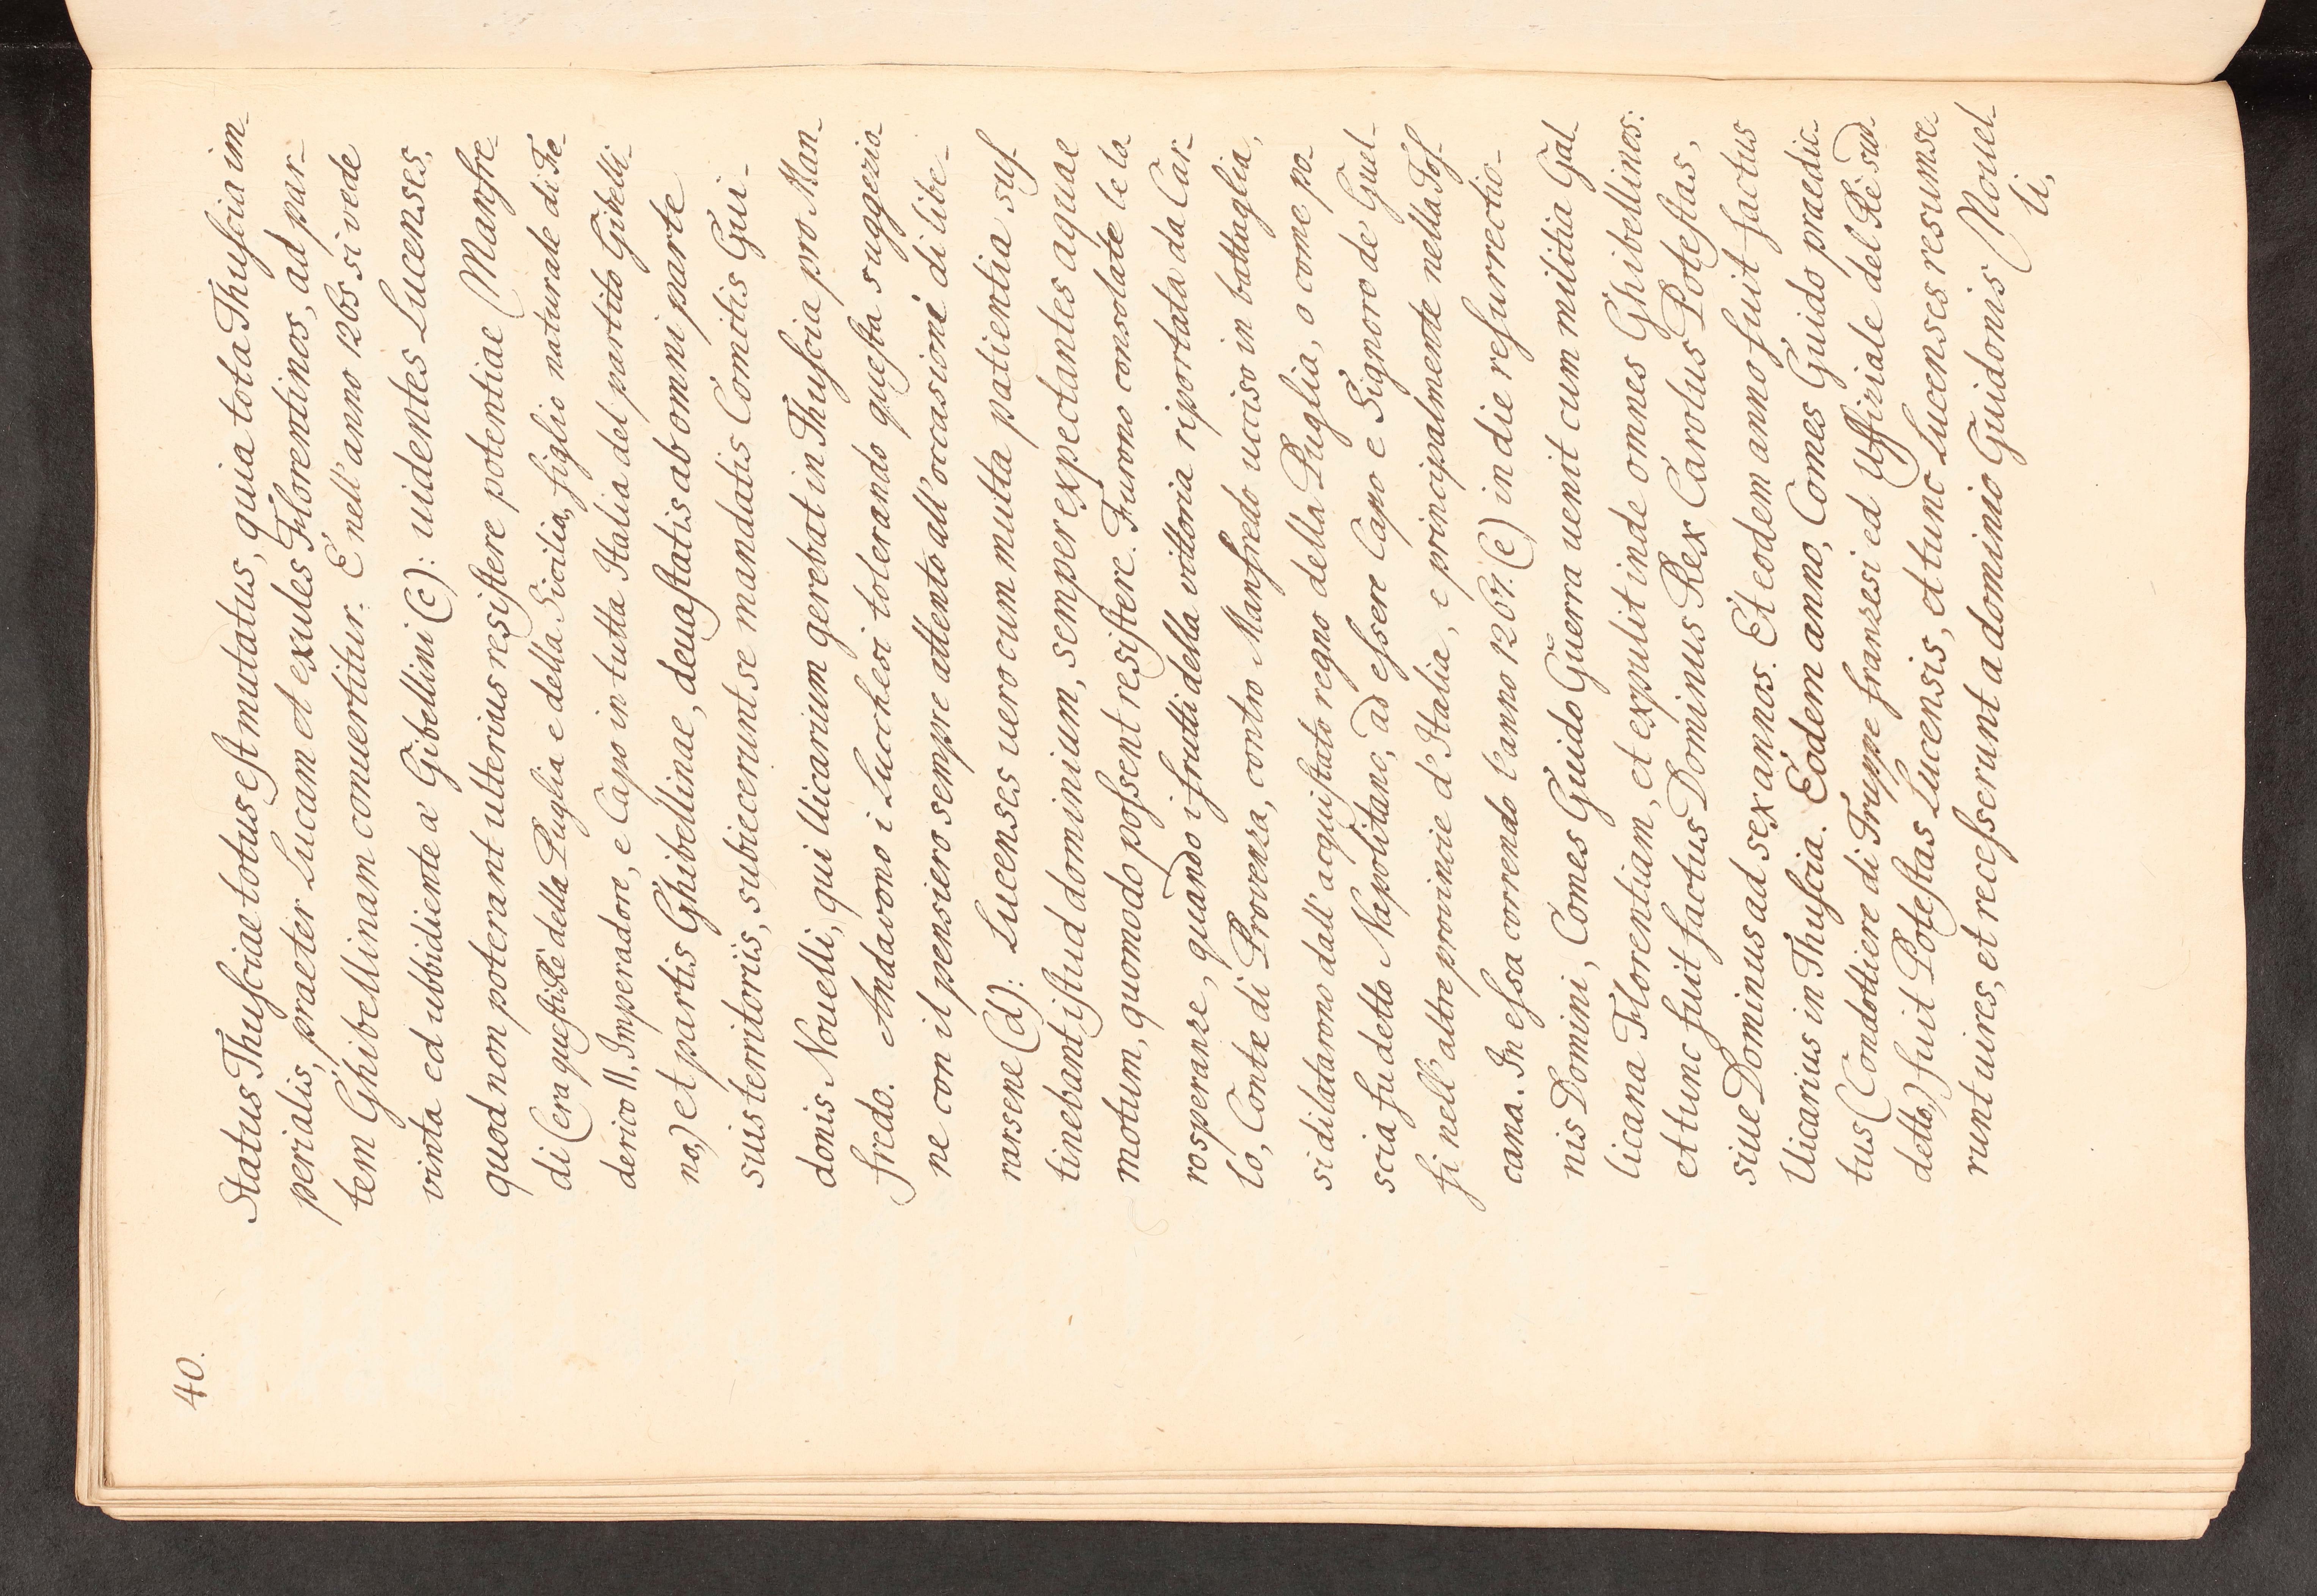 40.
Status Thusciae totus est mutatus, quia tota Thuscia im-
perialis, praeter Lucam et exules Florentinos, ad par-
tem Ghibellinam conuertitur. E nell'anno 1265 si vede
vinta ed ubbidiente a' Gibellini (c): uidentes Lucenses,
quod non poterant ulterius resistere potentiae (Manfre-
di (era questi Re della Puglia e della Sicilia, figlio naturale di Fe-
derico II. Imperadore, e Capo in tutta Italia del partito Gibelli-
no,) et partis Ghibellinae, deuastatis ab omni parte
suis territoriis, subiecerunt se mandatis Comitis Gui-
donis Nouelli, qui Uicarium gerebat in Thuscia pro Man-
fredo. Andavono i Lucchesi tolerando questa suggezio-
ne con il pensiero sempre attento all'occasione di libe-
rarsene (d): Lucenses uero cum multa patientia sus-
tinebant istud dominium, semper expectantes aquae
motum, quomodo possent resistere. Furono consolate le lo-
ro speranze, quando i frutti della vittoria riportata da Car-
lo, Conte di Provenza, contro Manfredo ucciso in battaglia,
si dilatarono dall'acquistato regno della Puglia, o come po-
scia fu detto Napolitano, ad essere Capo e Signoro de' Guel-
fi nell'altre provincie d'Italia, e principalmente nella Tos-
cana. In essa correndo l'anno 1267. (e) in die resurrectio-
nis Domini, Comes Guido Guerra uenit cum militia Gal-
licana Florentiam, et expulit inde omnes Ghibellinos:
et tunc fuit factus Dominus Rex Carolus Potestas,
siue Dominus ad sex annos. Et eodem anno fuit factus
Uicarius in Thuscia. Eodem anno, Comes Guido praedic-
tus (Condottiere di Truppe franzesi ed Uffiziale del Re sud-
detto,) fuit Potestas Lucensis, et tunc Lucenses resumse-
runt uires, et recesserunt a dominio Guidonis (Nouel-
li,